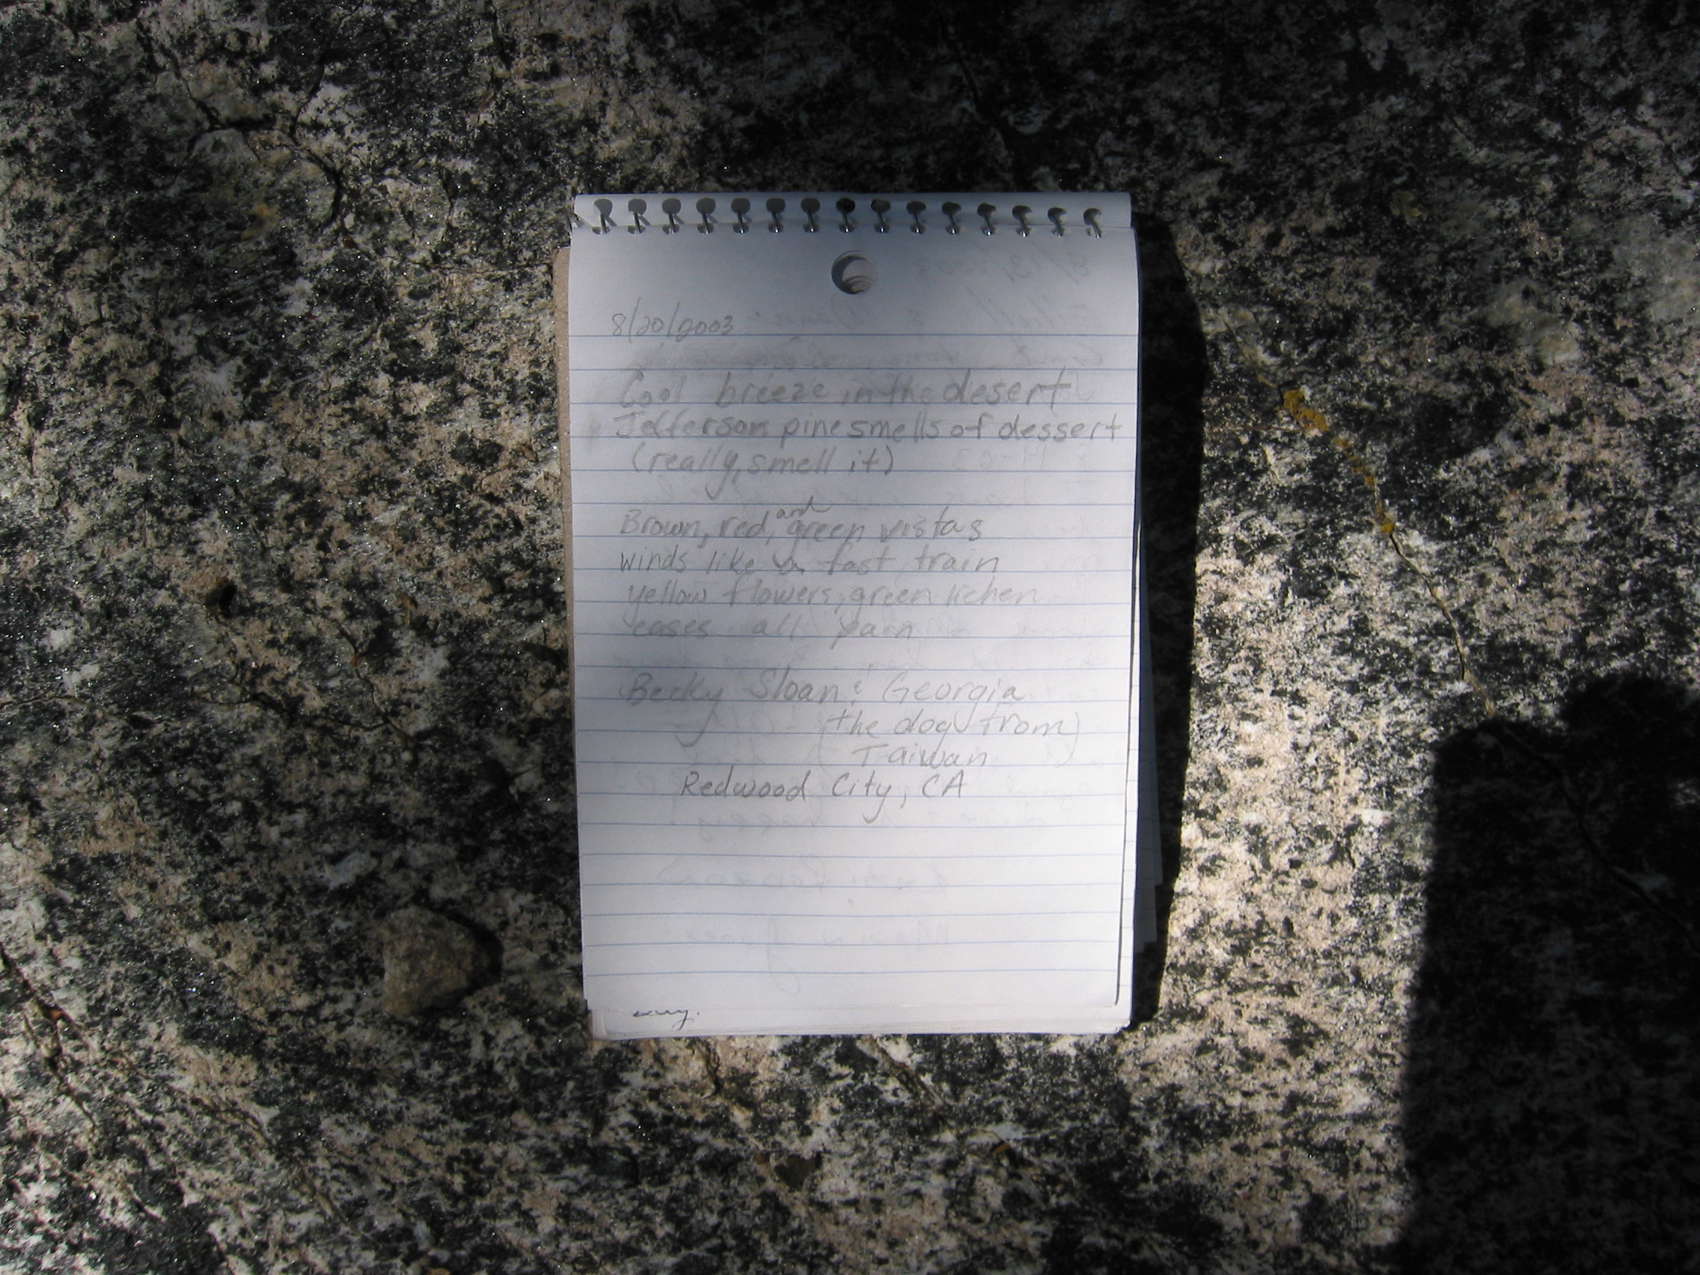 8/20/2003
Cool breeze in the desert
Jefferson pine smells of dessert
(really, smell it)
Brown, red, and green vistas
winds like a fast train
yellow flowers, green lichen
eases all pain
Becky Sloan & Georgia
(the dog from)
(Taiwan
Redwood City, CA